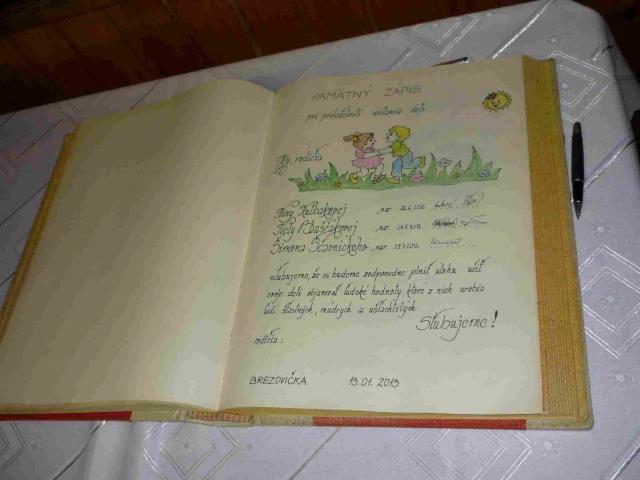 PAMÄTNÝ ZÁPIS
pri príležitosti uvítania detí
My, rodičia
Niny Kulbakovej , nar.
Nely Baščákovej , nar.
Šimona Ščavnického , nar.
sľubujeme, že si budeme zodpovedne plniť úlohu učiť
svoje deti objavovať ľudské hodnoty, ktoré z nich urobia
ľudí šťastných, múdrych a ušľachtilých.
Sľubujeme!
rodičia:
BREZOVIČKA 13.01.2013